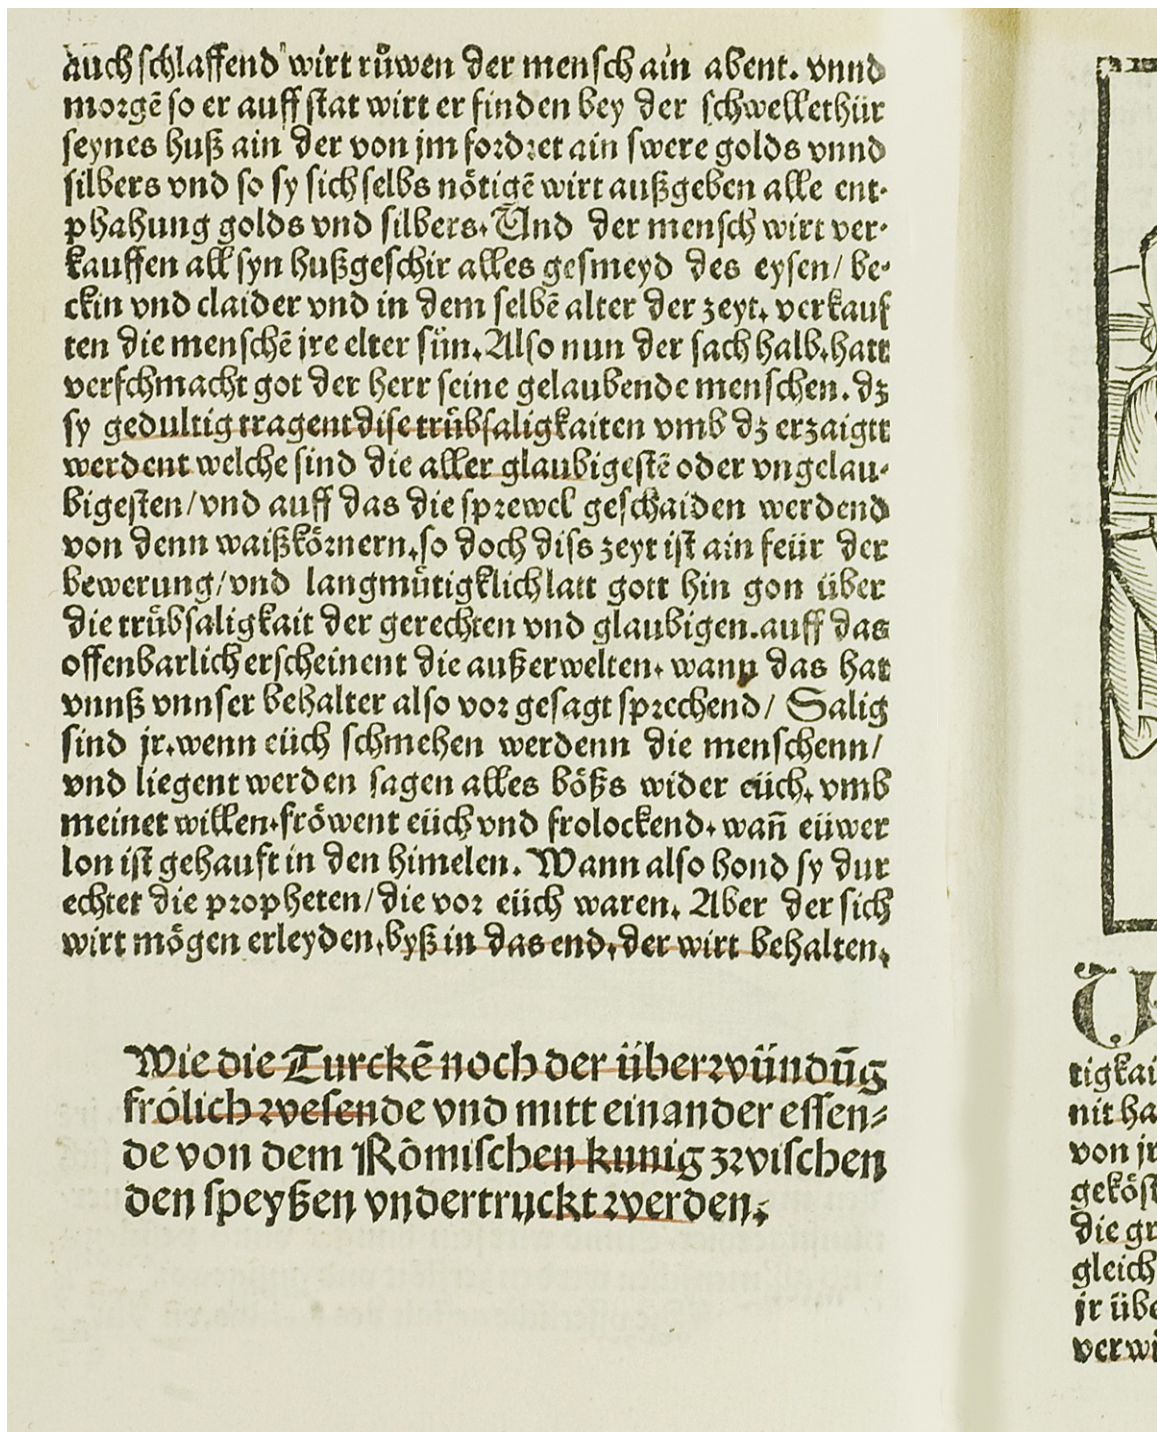 auch schlaffend wirt růwen der mensch ain abent. vnnd
morgē so er auff stat wirt er finden bey der schwellethür
seynes huß ain der von jm fordret ain swere golds vnnd
silbers vnd so sy sich selbs nötigē wirt außgeben alle ent-
phahung golds vnd silbers. Und der mensch wirt ver-
kauffen all syn hußgeschir alles gesmeyd des eysen/ be-
ckin vnd claider vnd in dem selbē alter der zeyt. verkauf
ten die menschē jre elter sün. Also nun der sach halb. hatt
verschmacht got der herr seine gelaubende menschen. dz
sy gedultig tragent dise trübsaligkaiten vmb dz erzaigtt
werdent welche sind die aller glaubigestē oder vngelau-
bigesten/vnd auff das die sprewel geschaiden werdend
von denn waißkörnern. so doch diss zeyt ist ain feür der
bewerung/vnd langmütigklich latt gott hin gon über
die trübsaligkait der gerechten vnd glaubigen. auff das
offenbarlich erscheinent die außerwelten. wann das hat
vnnß vnnser behalter also vor gesagt sprechend/ Salig
sind jr. wenn eüch schmehen werdenn die menschenn/
vnd liegent werden sagen alles bößs wider eüch. vmb
meinet willen. fröwent eüch vnd frolockend. wañ eüwer
lon ist gehauft in den himelen. Wann also hond sy dur
echtet die propheten/die vor eüch waren. Aber der sich
wirt mögen erleyden. byß in das end. der wirt behalten.
Wie die Turckē noch der überwündūg
frölich wesende vnd mitt einander essen-
de von dem Römischen kunig zwischen
den speyßen vndertruckt werden.
tigkai
nit ha
von jr
geköst
die gr
gleich
jr übe
verwi